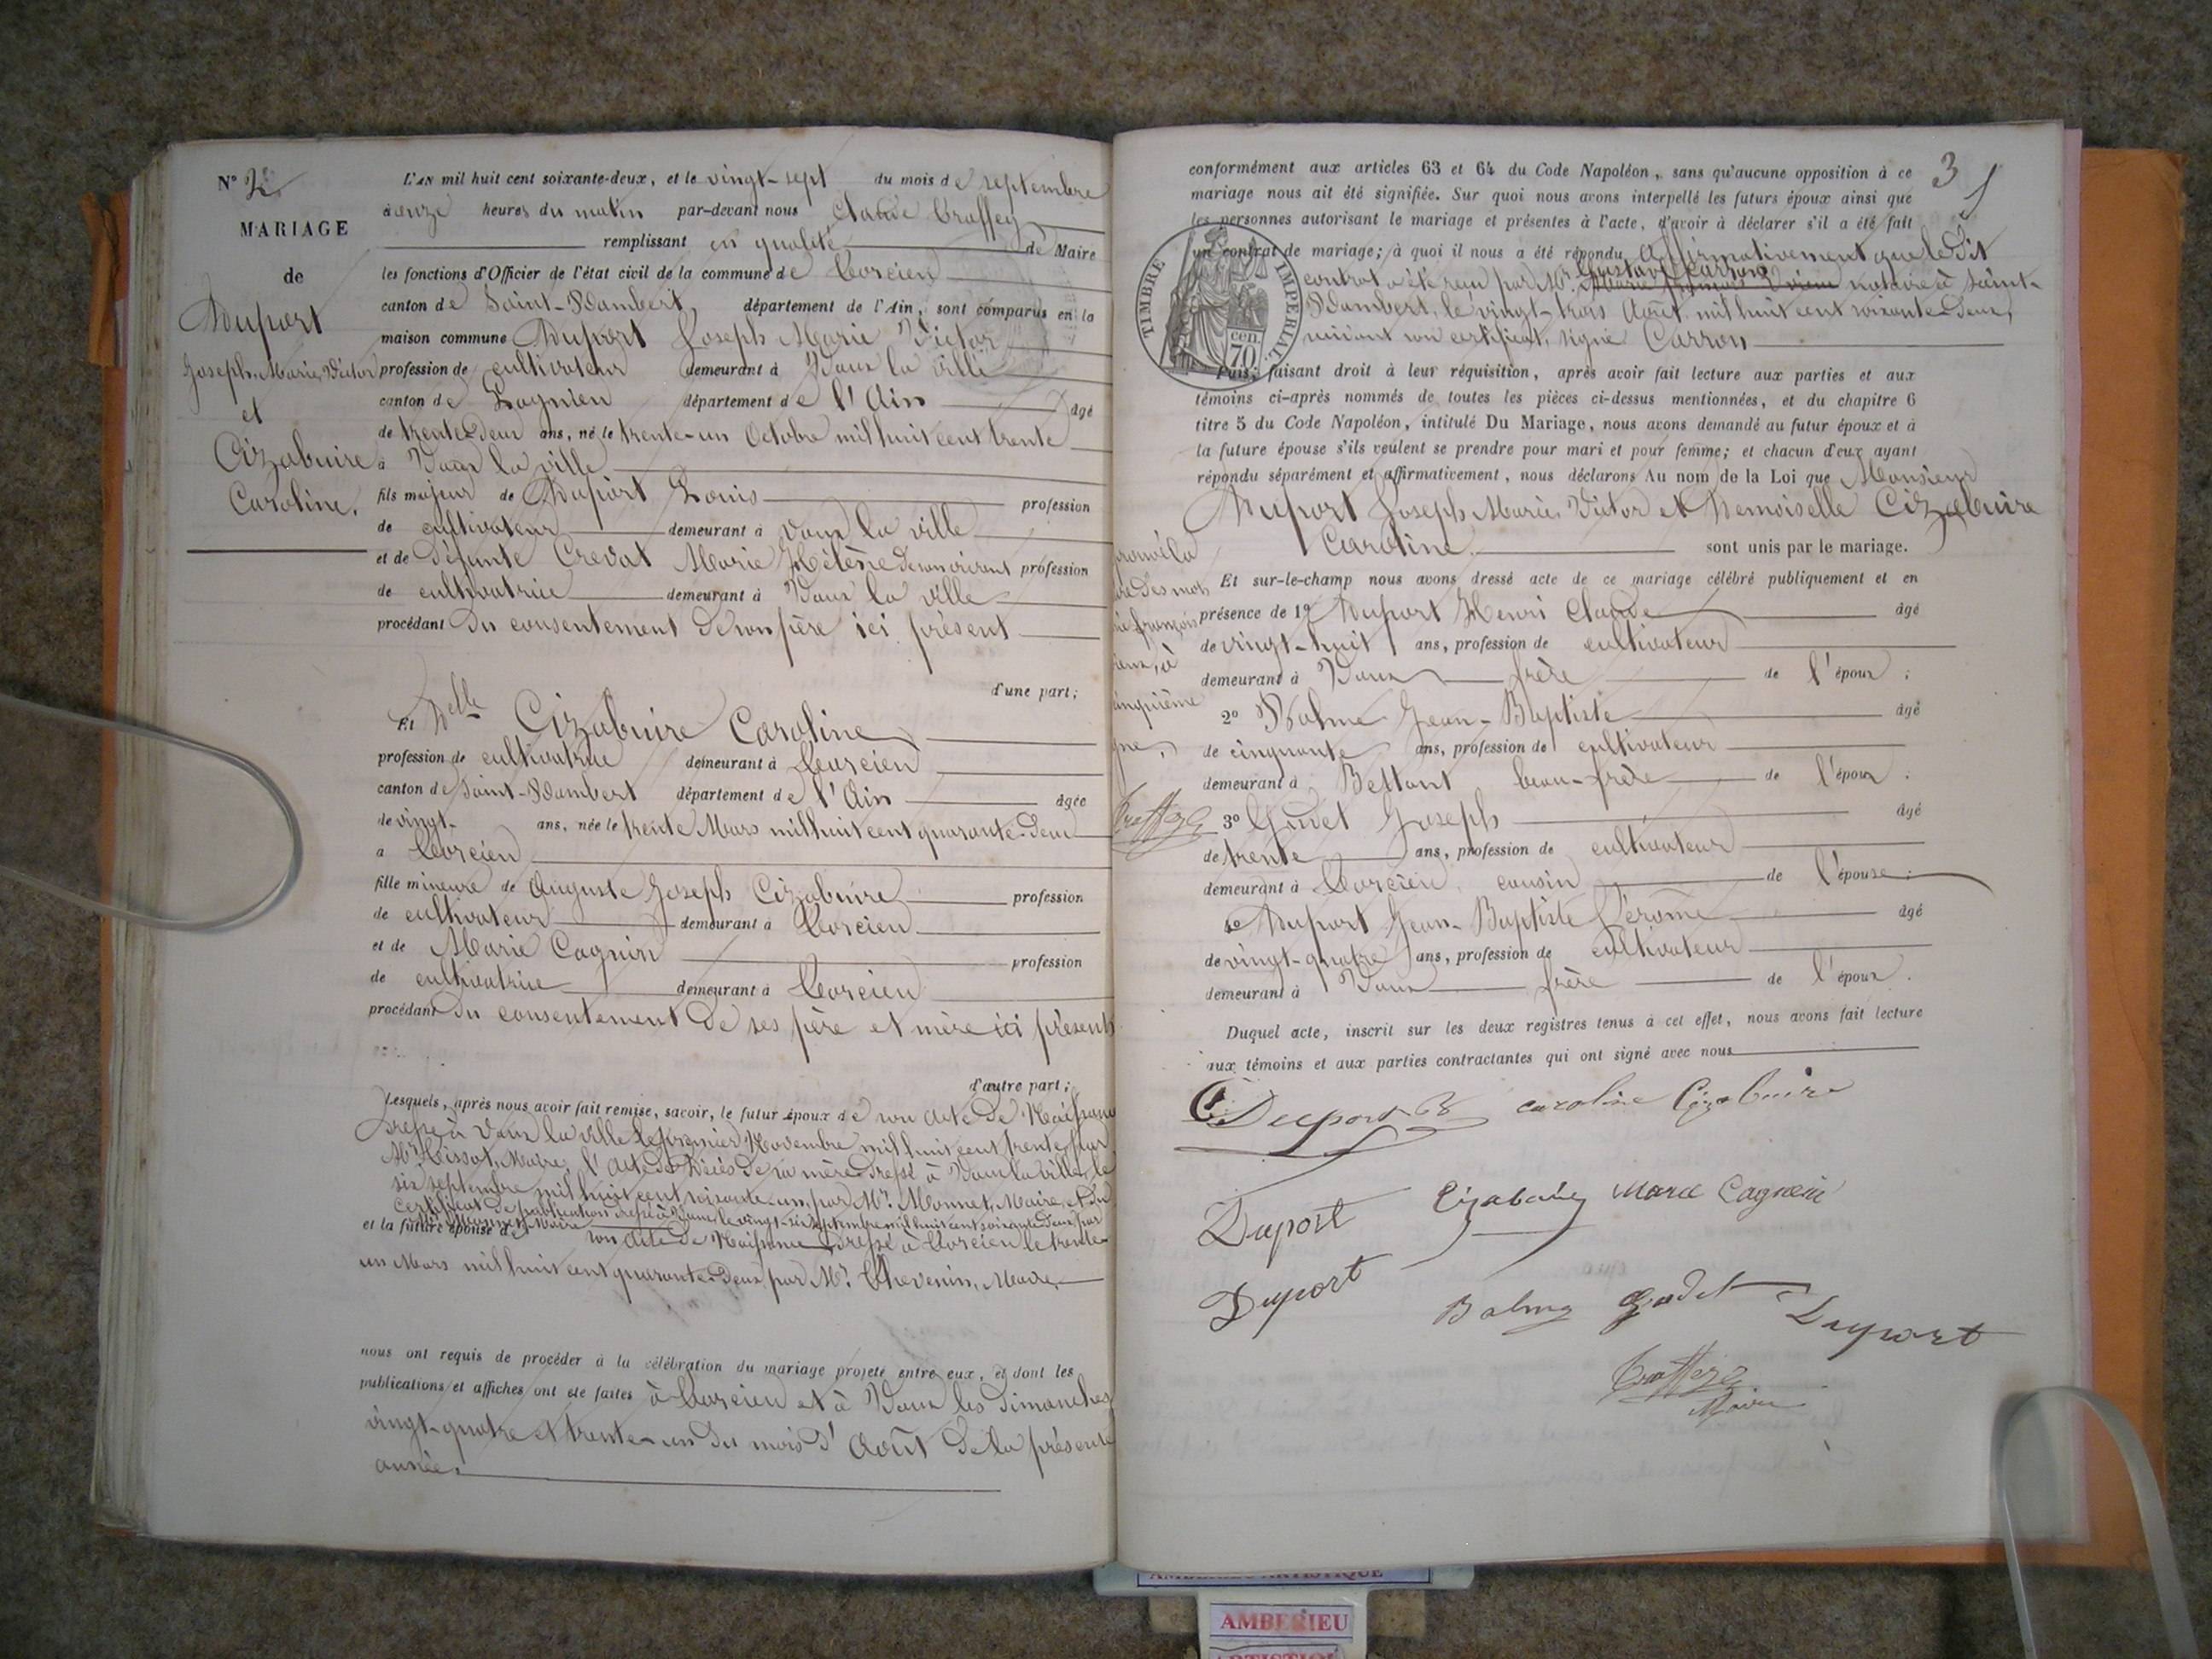 N° 2.
MARIAGE
de
Duport
Joseph Marie Victor
et
Cizabuire
Caroline.
L'AN mil huit cent soixante-deux, et le vingt-sept du mois de septembre
à onze heures du matin par-devant nous Claude
remplissant en qualité de Maire
les fonctions d'Officier de l'état civil de la commune de Torcieu
canton de Saint-Rambert, département de l'Ain, sont comparus en la
maison commune Duport Joseph Marie Victor
profession de cultivateur demeurant à Vaux la ville
canton de Lagnieu département de l'Ain âgé
de trente-deux ans, né le trente-un Octobre mil huit cent trente
à Vaux la ville
fils majeur de Duport Louis profession
de cultivateur demeurant à Vaux la ville
et de défunte Crevat Marie Hélène de son vivant profession
de cultivatrice demeurant à Vaux la ville
procédant du consentement de son père ici présent
d'une part;
Et Delle Cizabuire Caroline
profession de cultivatrice demeurant à Torcieu
canton de Saint-Rambert département de l'Ain âgée
de vingt- ans, née le trente Mars mil huit cent quarante-deux
à Torcieu
fille mineure de Auguste Joseph Cizabuire profession
de cultivateur demeurant à Torcieu
et de Marie Cagnin profession
de cultivatrice demeurant à Torcieu
procédant du consentement de ses père et mère ici présents
d'autre part;
Lesquels, après nous avoir fait remise, savoir, le futur époux de son acte de Naissance
dressé à Vaux la ville le premier Novembre mil huit cent trente par
Mr Maire, l'acte de Décès de sa mère dressé à Vaux la ville, le
six septembre mil huit cent soixante-un, par Mr. Monnet, Maire, et du
certificat de publication dressé à Vaux, le vingt-six septembre mil huit cent soixante-deux par
Mr Monnet Maire
et la future épouse de son acte de Naissance dressé à Torcieu le trente-
un Mars mil huit cent quarante-deux, par Mr. Thevenin, Maire
nous ont requis de procéder à la célébration du mariage projeté entre eux, et dont les
publications et affiches ont été faites à Torcieu et à Vaux les dimanches
vingt-quatre et trente-un du mois d'Août de la présente
année.
31
conformément aux articles 63 et 64 du Code Napoléon, sans qu'aucune opposition à ce
mariage nous ait été signifiée. Sur quoi nous avons interpellé les futurs époux ainsi que
les personnes autorisant le mariage et présentes à l'acte, d'avoir à déclarer s'il a été fait
un contrat de mariage; à quoi il nous a été répondu affirmativement que le dit
Gustave Carron
contrat a été reçu par Mr. notaire à Saint-
Rambert, le vingt-trois Août mil huit cent soixante-deux,
suivant son certificat, signé Carron
TIMBRE IMPERIAL
70 cen.
Puis, faisant droit à leur réquisition, après avoir fait lecture aux parties et aux
témoins ci-après nommés de toutes les pièces ci-dessus mentionnées, et du chapitre 6
titre 5 du Code Napoléon, intitulé Du Mariage, nous avons demandé au futur époux et à
la future épouse s'ils veulent se prendre pour mari et pour femme; et chacun d'eux ayant
répondu séparément et affirmativement, nous déclarons Au nom de la Loi que Monsieur
Duport Joseph Marie Victor et Demoiselle Cizabuire
Caroline sont unis par le mariage.
Et sur-le-champ nous avons dressé acte de ce mariage célébré publiquement et en
présence de 1° Duport Henri Claude âgé
de vingt-huit ans, profession de cultivateur
demeurant à Vaux frère de l'époux;
2° Balme Jean-Baptiste âgé
de cinquante ans, profession de cultivateur
demeurant à Bettant beau-frère de l'époux.
3° Joseph âgé
de trente ans, profession de cultivateur
demeurant à Torcieu, cousin de l'épouse;
4° Duport Jean-Baptiste Jérome âgé
de vingt-quatre ans, profession de cultivateur
demeurant à Vaux frère de l'époux.
Duquel acte, inscrit sur les deux registres tenus à cet effet, nous avons fait lecture
aux témoins et aux parties contractantes qui ont signé avec nous
Duport caroline Cizabuire
Duport Marie
Duport Balme Duport
Maire
AMBERIEU ARTISTIQUE
AMBERIEU
ARTISTIQUE